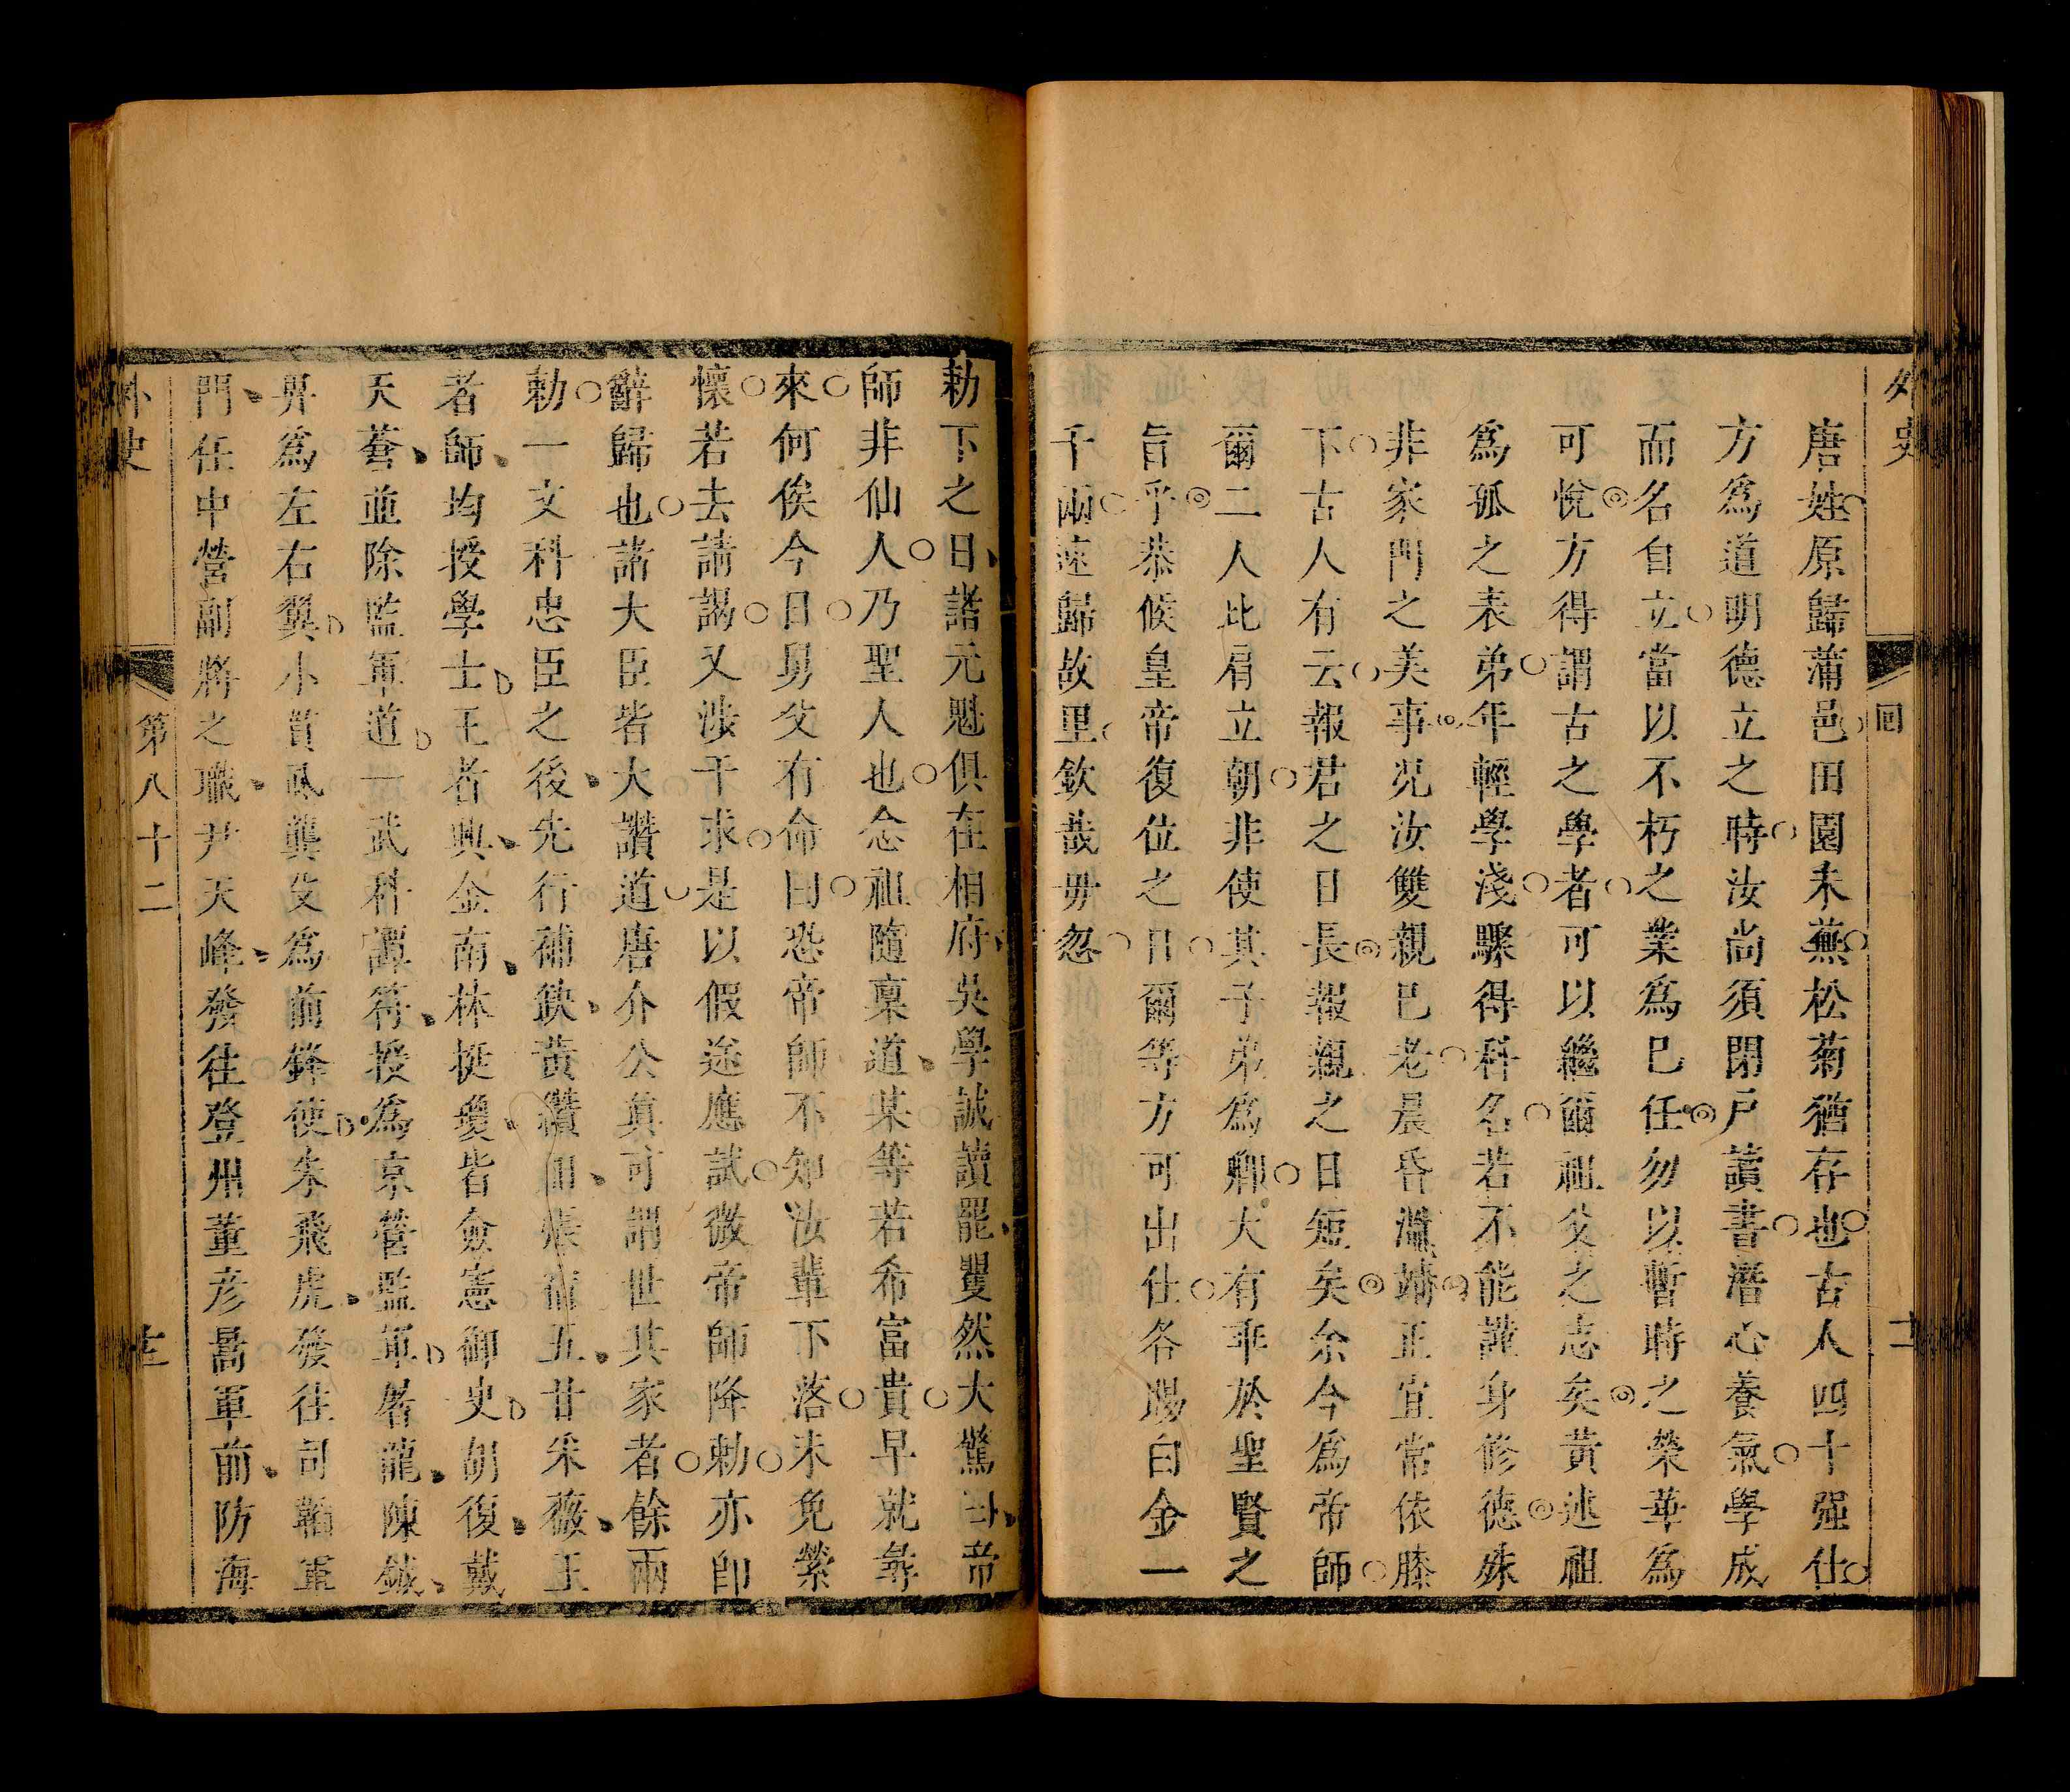 外史
回
唐姓原歸蒲邑田園未蕪松菊猶存也古人四十强仕
方爲道明德立之時汝尚須閉戶讀書潛心養氣學成
而名自立當以不朽之業爲已任勿以暫時之榮華爲
可悅方得謂古之學者可以繼爾祖父之志矣黃述祖
爲孤之表弟年輕學淺驟得科名若不能謹身修德殊
非家門之美事况汝雙親已老晨昏瀡正宜常依膝
下古人有云報君之日長報親之日短矣余今爲帝師
爾二人比肩立朝非使其子弟爲卿大有乖於聖賢之
旨乎恭候皇帝復位之日爾等方可出仕各賜白金一
千兩速歸故里欽哉毋忽
勅下之日諸元魁俱在相府吳學誠讀罷矍然大驚曰帝
師非仙人乃聖人也念祖隨稟道某等若希富貴早就彝
來何俟今日舅父有命曰恐帝師不知汝輩下落未免縈
懷若去請謁又涉干求是以假途應試微帝師降勅亦卽
辭歸也諸大臣皆大讚道唐介公真可謂世其家者餘兩
勅一文科忠臣之後先行補缺黃鑽由張蒲五廿朱薇王
者師均授學士王者興金南林挺瓊皆僉憲御史胡復戴
天蒼並除監軍道一武科譚符授爲京營監軍屠龍陳鉞
昇爲左右翼小首臥龔攴爲前鋒使朱飛虎發往司韜軍
門任中營副將之職尹天峰發往登州董彦暠軍前防海
外史
第八十二